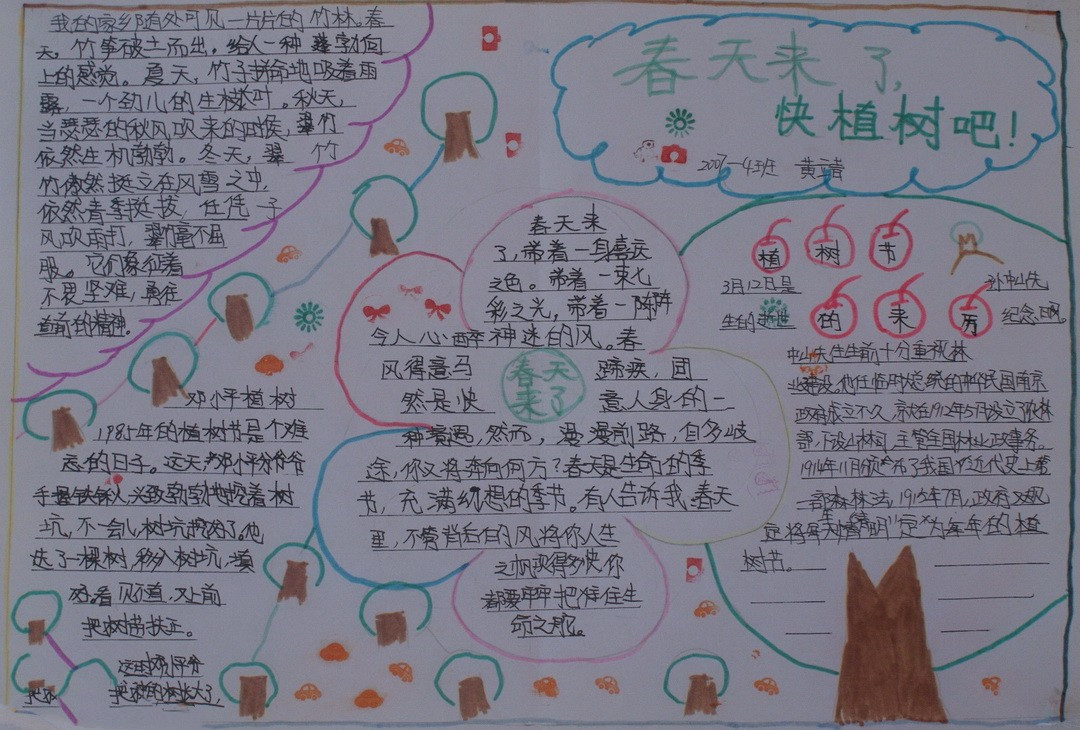 春天来了,
快植树吧!
我的家乡随处可见一片片的竹林。春
天,竹笋破土而出。给人一种蓬勃向
上的感觉。夏天,竹子拼命地吸着雨
露,一个幼儿的生根长叶。秋天,
当瑟瑟的秋风吹来的时候,翠竹
依然生机勃勃。冬天,翠竹
竹傲然挺立在风雪之中,
依然青季挺拔,任凭子
风吹雨打,翠竹毫不屈
服。它们象征着
不畏坚难,勇往
直前的精神。
邓小平植树
1985年的植树节是个难
忘的日子。这天,邓小平爷爷
手握铁锹,兴致勃勃地挖着树
坑,不一会儿树坑挖好了。他
达了一棵树,移入树坑,填
好。看见不直,又上前
把树苗扶正。
春天来
了,带着一身喜庆
之色。带着一束七
彩之光,带着一阵阵
令人心醉神迷的风。春
风得意马蹄疾,固
然是快意人身的一
春天来了
种境遇,然而,漫漫前路,自多岐
途,你又将奔向何方?春天是生命的季
节,充满幻想的季节。有人告诉我,春天
里,不管背后的风将你人生
之帆吹得多快,你
都要牢牢把准住生
命之舵。
植树节的来历
3月12日是孙中山先
生的逝世纪念日。
中山先生生前十分重视林
业建设。他任临时大总统的中华民国南京
政府成立不久,就在1912年5月设立了农林
部,下设山林司,主管全国林业政事务。
1914年11月颁布了我国近代史上第
一部森林法,1915年7月,政府又规
定将每年清明"定"为每年的植
树节。